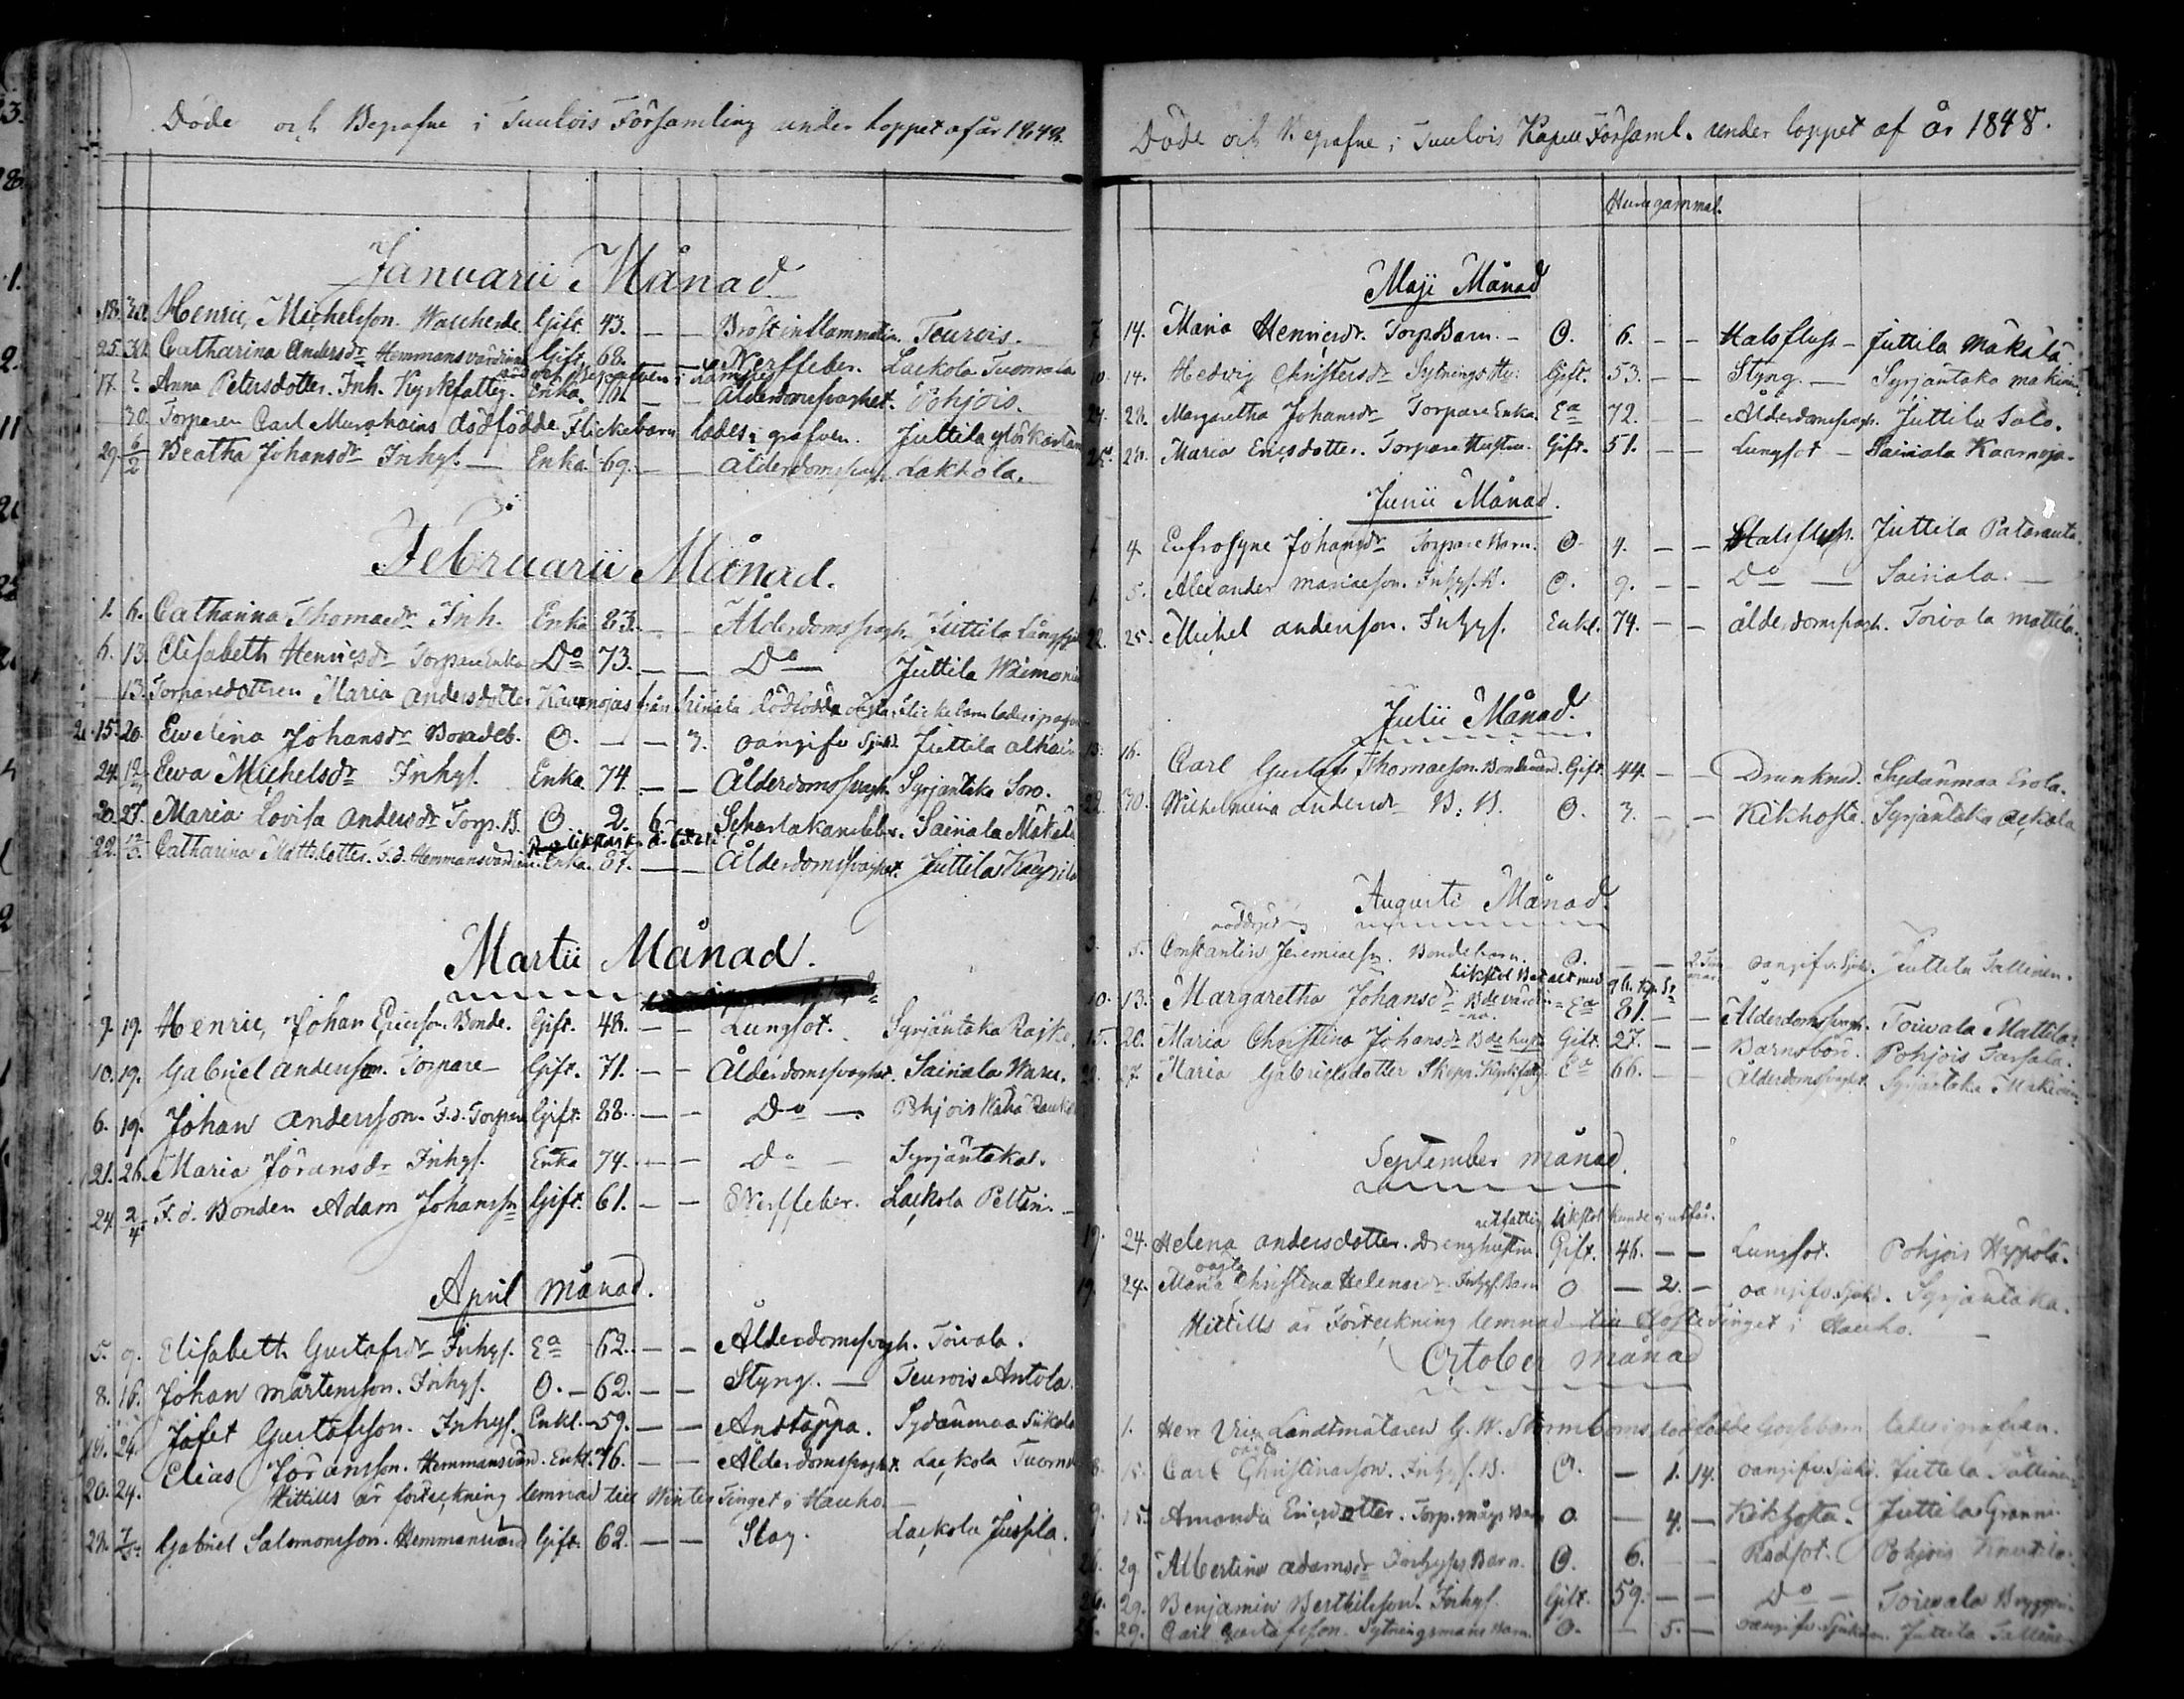 Döde och Begrafne i Tuulois Församling under loppet af år 1848.
Januarii Månad
18. 30. Henric Michelsson. Gift 43. — — Bröstinflammation. Teurois.
25. 30. Catharina Andersdr Hemmansvärdinna Gift. 68. — — Nerffeber. Lackola Tuomola
död och begrafven i
17. ? Anna Petersdotter. Inh. Kyrkfattig. Enka. 70. — — Ålderdomsvaghet. Pohjois.
30. Torparen Carl dödfödde Flickebarn lades i grafven. Juttila
29. 6/2 Beatha Johansdr Inhys. — Enka. 69. — — Ålderdomssvagh. Lakkola.
Februarii Månad.
1. 6. Catharina Thomaedr Inh. Enka 83. — — Ålderdomssvagh. Juttila
6. 13. Elisabeth Henricsdr Torpare Enka Do 73. — — Do — Juttila
13. Torparedottren Maria Andersdotter Karmojas från dödfödda oägta Flickebarn lades i grafven
15. 20. Ewelina Johansdr Bondeb. O. — — 3. oangifv. Sjukd. Juttila
24. 12/3 Ewa Michelsdr Inhys. Enka 74. — — Ålderdomssvagh. Syrjäntaka Soro.
20. 27. Maria Lovisa Andersdr Torp. B. O 2. 6. — Scharlakansfeber. Sairiala Mäkelä
22. 12/3. Catharina Mattsdotter. F.d. Hemmansvärdin. Enka. 87. — — Ålderdomssvaghet. Juttila
Martii Månad.
9. 19. Henric Johan Ericsson. Bonde. Gift. 48. — — Lungsot. Syrjäntaka
10. 19. Gabriel Andersson. Torpare — Gift. 71. — — Ålderdomssvaghet. Sairiala
6. 19. Johan Andersson. F.d. Torpare Gift. 88. — — Do — Pohjois
21. 26. Maria Göransdr Inhys. Enka 74. — — Do — Syrjäntaka.
24. 2/4 F.d. Bonden Adam Johansson Gift. 61. — — Nerffeber. Lackola
April månad.
5. 9. Elisabeth Gustafsdr Inhys. Ea 62. — — Ålderdomssvagh. Toivala.
8. 16. Johan Mårtensson. Inhys. O. — 62. — — Styng. — Teurois Antola.
18. 24. Jafet Gustafsson. Inhys. Enkl. 59. — — Andtäppa. Sydänmaa
20. 24. Elias Göransson. Hemmansvärd. Enkl. 76. — — Ålderdomssvaght. Lackola Tuomola
Hittills är förteckning lemnad till Winter Tinget i Hauho. —
28. 7/5 Gabriel Salomonsson. Hemmansvärd Gift. 62. — — Slag. Lackola Jussila.
Döde och Begrafne i Tuulois Kapell Församl. under loppet af år 1848.
Huru gammal.
Maji Månad
7. 14. Maria Henricsdr. TorpBarn. — O. 6. — — Halsfluss — Juttila Mäkelä
10. 14. Hedvig Christersdr Sytningshu. Gift. 53. — — Styng. — Syrjäntaka
24. 28. Margaretha Johansdr Torpare Enka Ea 72. — — Ålderdomssvagh. Juttila Salo.
28. Maria Ericsdotter. Torpare Hustru. Gift. 51. — — Lungsot — Sairiala Karmoja.
Junii Månad.
4. Eufrosyne Johansdr Torpare Barn. O 4. — — Halsfluss. Juttila
1. 5. Alexander Mariaeson. Inhys. B. O. 9. — — Do — Sairiala. —
22. 25. Michel Andersson. Inhys. Enkl. 74. — — Ålderdomssvagh. Toivola Mattila.
Julii Månad.
13. 16. Carl Gustaf Thomaeson. Bondevärd. Gift 44. — — Drunknad. Sydänmaa Erola.
22. 30. Wilhelmina Andersdr B. B. O. 3. — — Kikhosta. Syrjäntaka
Augusti Månad.
nöddöpt
3. 5. Constantin Jeremiaesn. Bondebarn. O. — — oangifv. Sjukd. Juttila Tattinen.
10. 13. Margaretha Johansdr Ea 81. — — Ålderdomssvagh. Toivala Mattila
15. 20. Maria Christina Johansdr Gift. 27. — — Barnsbörd. Pohjois
22. 27. Maria Gabrielsdotter Ea 66. — — Ålderdomssvaght. Syrjäntaka
September månad.
utfattig likstol kunde ej utfås.
19. 24. Helena Andersdotter. Drenghustru Gift. 46. — — Lungsot. Pohjois
oägta
19. 24. Maria Christina Helenasdr Inhys. Barn O — 2. — oangifv. Sjukd. Syrjäntaka.
Hittills är Förteckning lemnad till Höste Tinget i Hauho. —
October månad
1. Herr Vice Landtmätaren G. W. Stormboms dödfödde Gossebarn lades i grafven.
oägta
8. 15. Carl Christinasson. Inhys. B. O. — 1. 14. oangifv. Sjukd. Juttila
9. 15. Amanda Ericsdotter. Torp. Barn O — 4. — Kikhosta. Juttila
26. 29 Albertina Adamsdr Inhyses Barn. O. 6. — — Rödsot. Pohjois
26. 29. Benjamin Berthilsson. Inhys. Gift. 59. — — Do — Toivala
29. Carl Gustafsson. Sytningsmans Barn. O. — 5. — oangifv. Sjukdom. Juttila